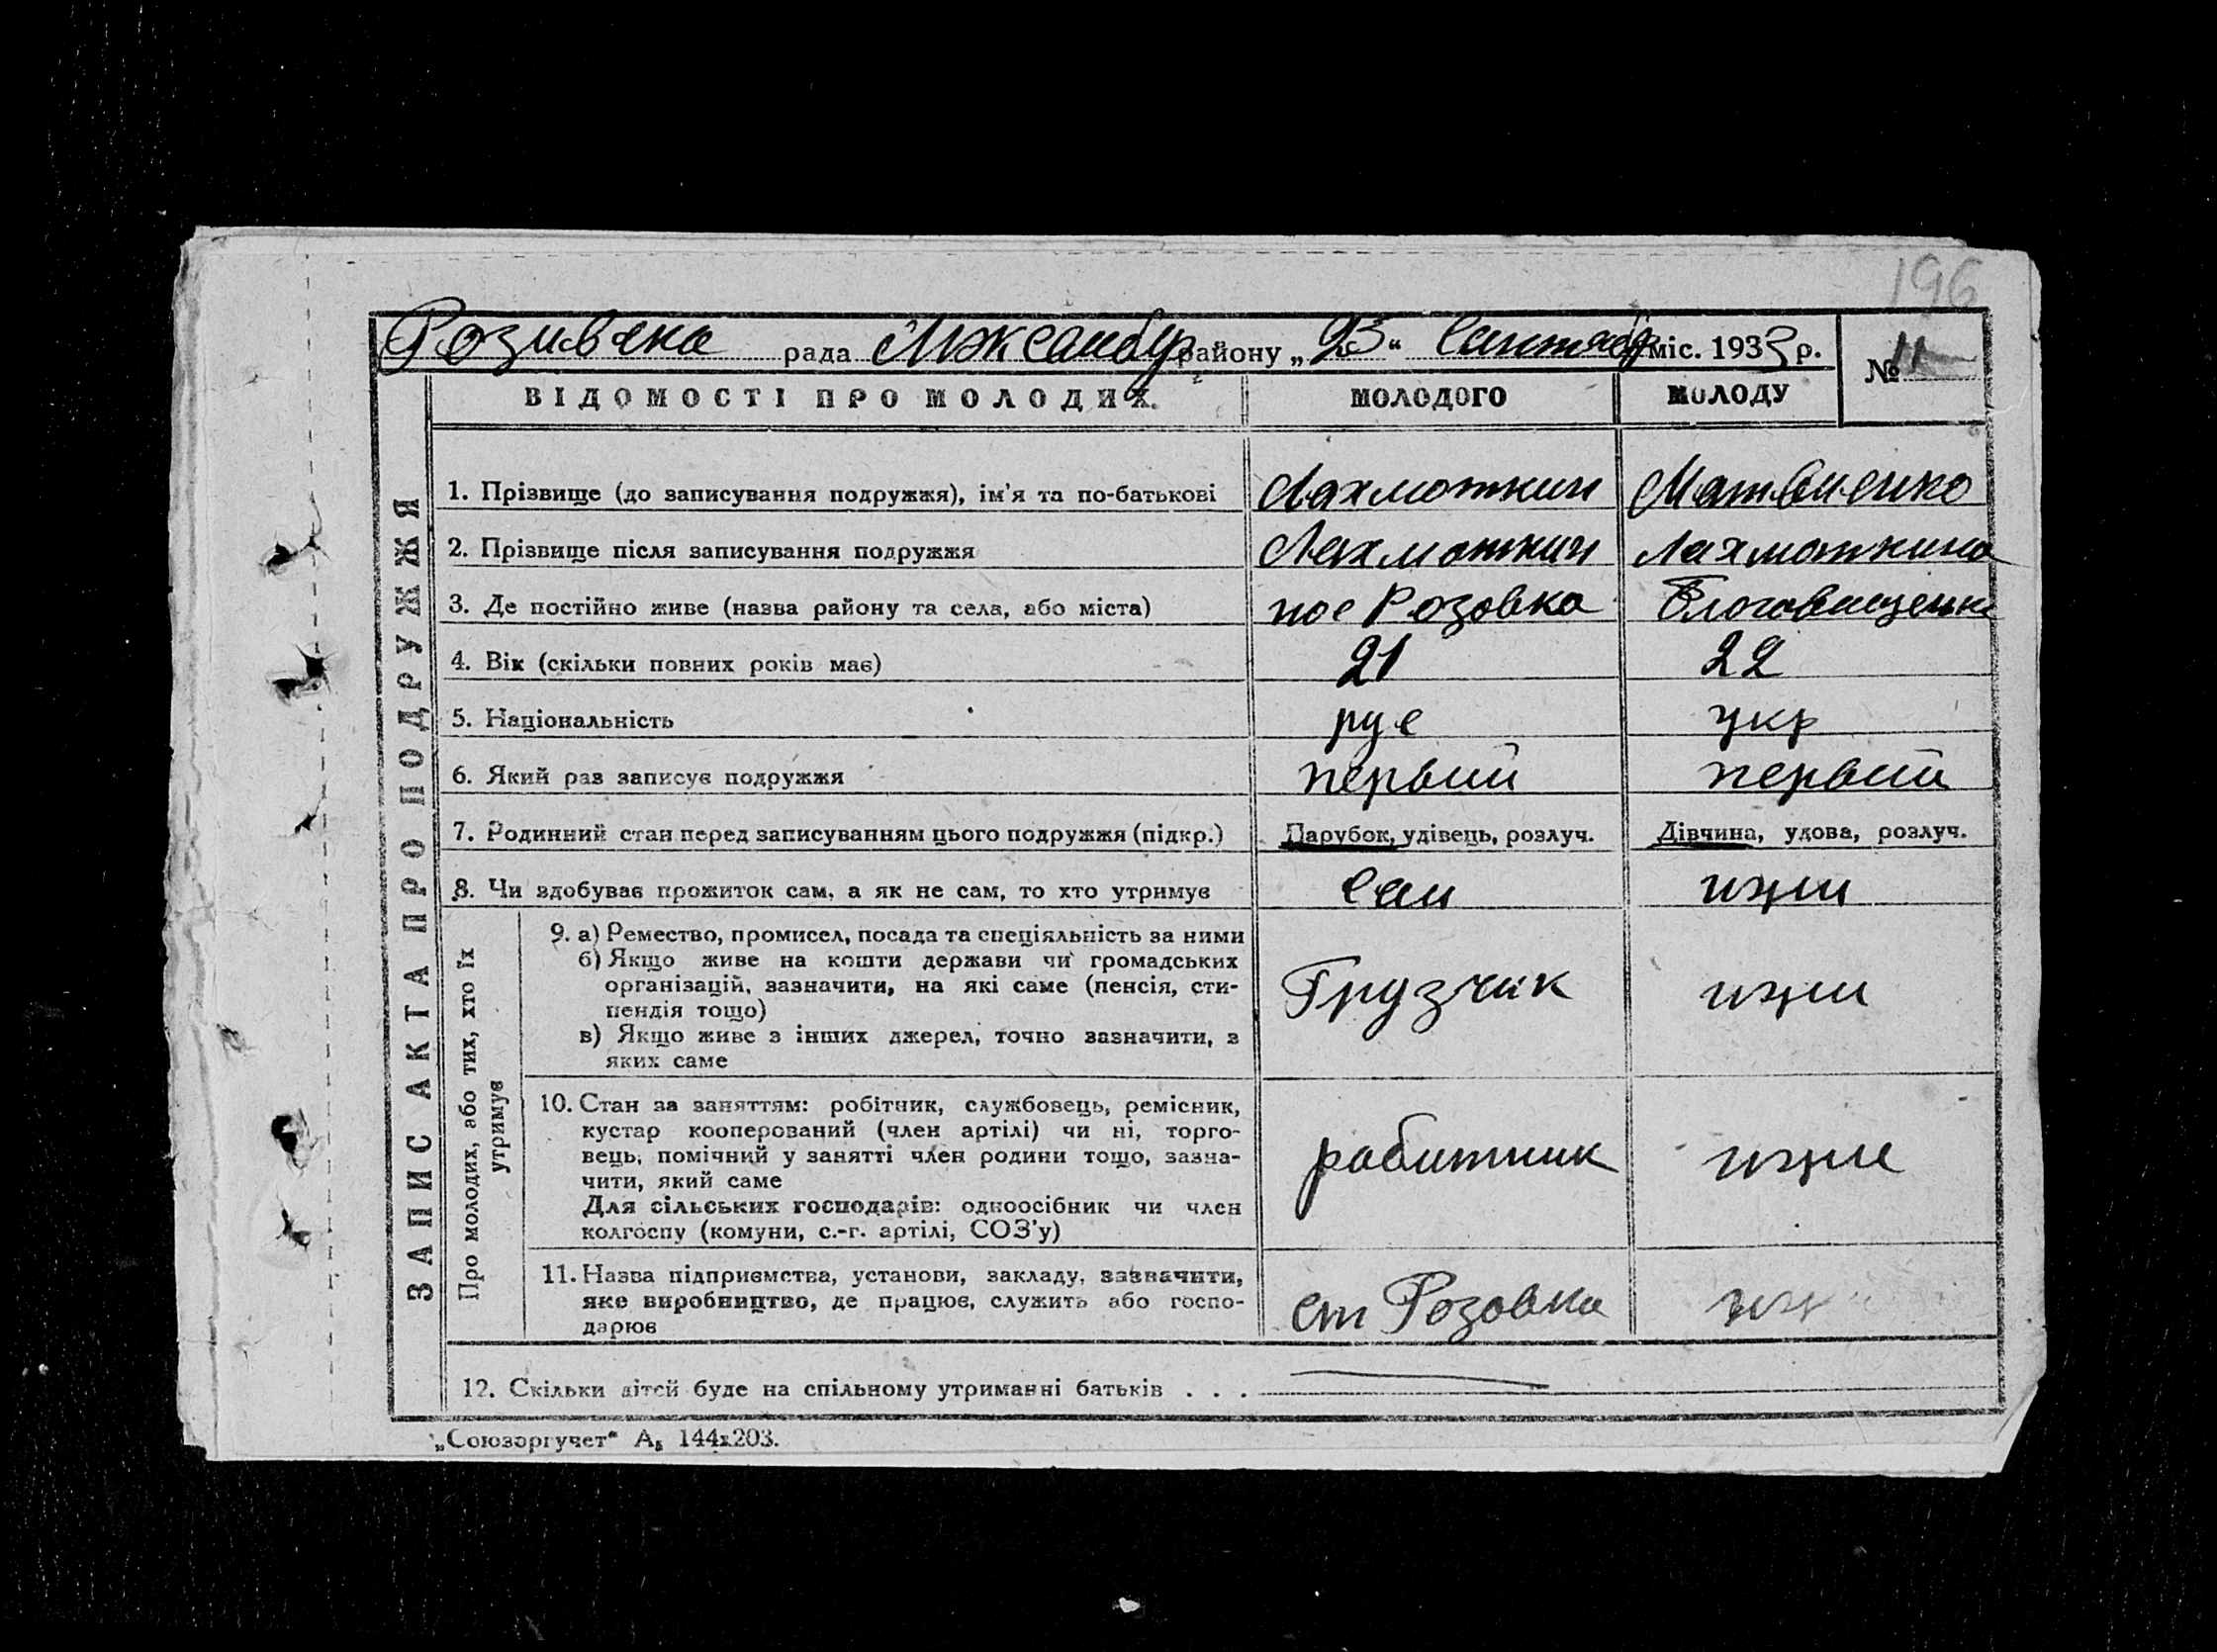 196
Розивска рада Люксембур району „23“ Сентябр міс. 1933 р. № 11
ВІДОМОСТІ ПРО МОЛОДИХ МОЛОДОГО МОЛОДУ
ЗАПИС АКТА ПРО ПОДРУЖЖЯ
1. Прізвище (до записування подружжя), ім'я та по-батькові Лахмоткин Матвиенко
2. Прізвище після записування подружжя Лахмоткин Лахмоткина
3. Де постійно живе (назва району та села, або міста) пос Розовка
4. Вік (скільки повних років має) 21 22
5. Національність рус укр
6. Який раз записує подружжя первый первый
7. Родинний стан перед записуванням цього подружжя (підкр.) Парубок, удівець, розлуч. Дівчина, удова, розлуч.
8. Чи здобуває прожиток сам, а як не сам, то хто утримує сам ижди
Про молодих, або тих, хто їх
утримує
9. а) Ремество, промисел, посада та спеціяльність за ними
б) Якщо живе на кошти держави чи громадських
організацій, зазначити, на які саме (пенсія, сти-
пендія тощо)
в) Якщо живе з інших джерел, точно зазначити, з
яких саме
Грузчик ижди
10. Стан за заняттям: робітник, службовець, ремісник,
кустар кооперований (член артілі) чи ні, торго-
вець, помічний у занятті член родини тощо, зазна-
чити, який саме
Для сільських господарів: одноосібник чи член
колгоспу (комуни, с.-г. артілі, СОЗ'у)
работник ижди
11. Назва підприємства, установи, закладу, зазначити,
яке виробництво, де працює, служить або госпо-
дарює
ст Розовка
12. Скільки дітей буде на спільному утриманні батьків . . .
„Союзоргучет“ А₅ 144х203.